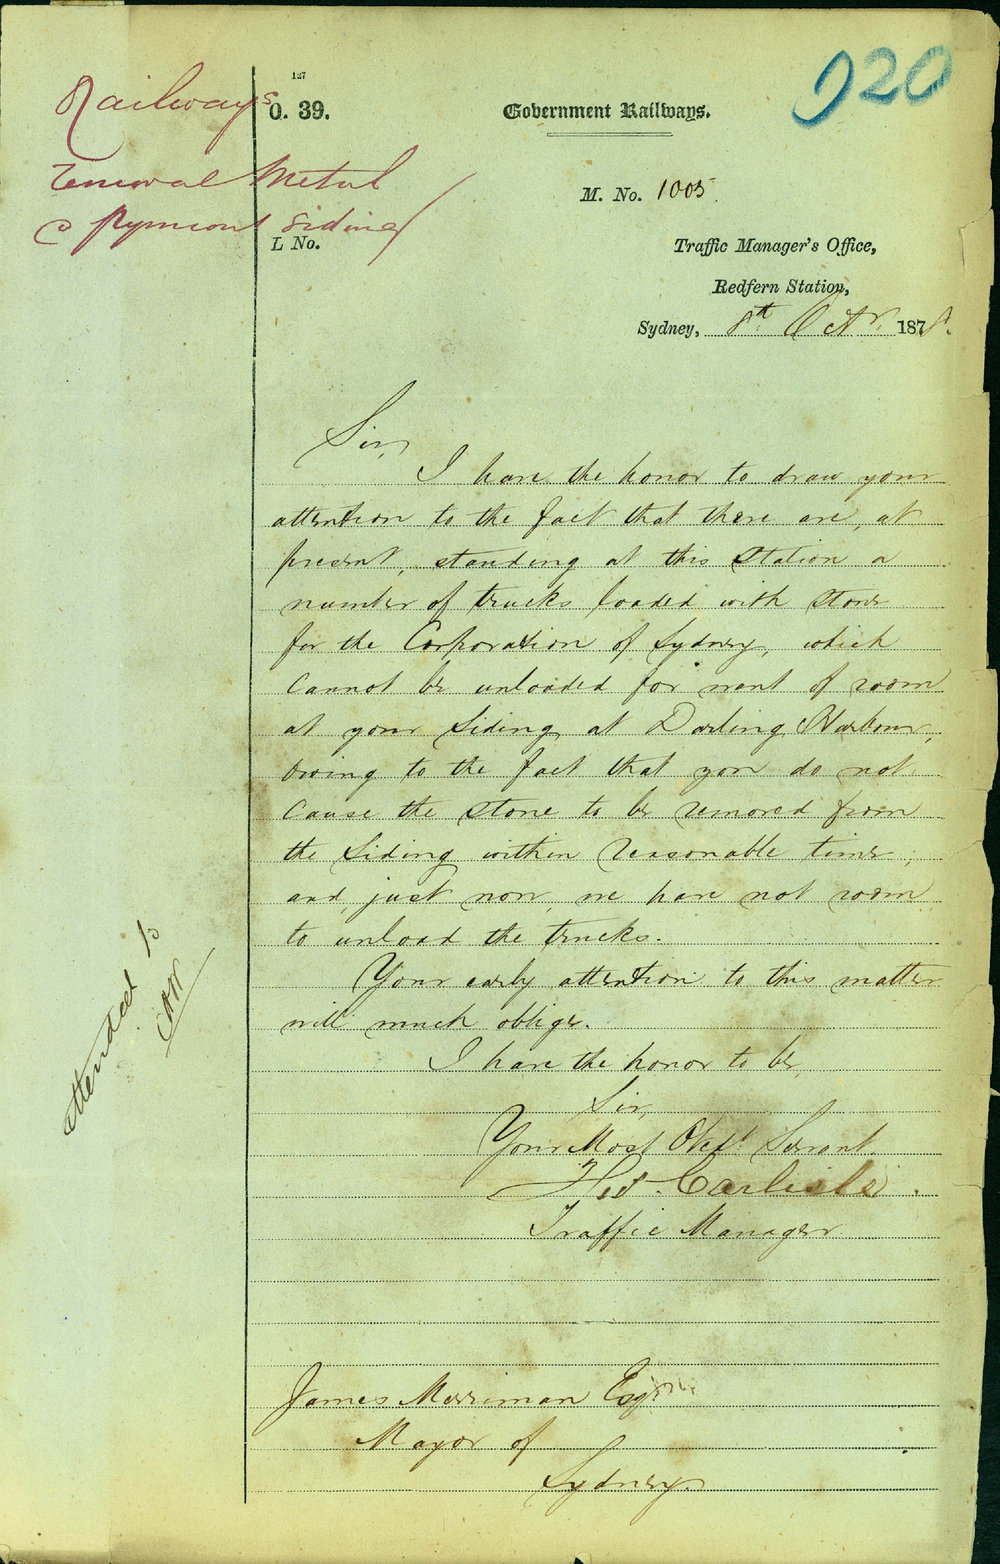 920
127
O. 39.
Government Railways.
Railways
removal Metal
@ Pyrmont Siding
M. No. 1005.
L No.
Traffic Manager's Office,
Redfern Station,
Sydney, 8th Octr. 1878.
Sir,
I have the honor to draw your
attention to the fact that there are, at
present, standing at this Station a
number of trucks loaded with stone
for the Corporation of Sydney, which
cannot be unloaded for want of room
at your Siding at Darling Harbour,
owing to the fact that you do not
cause the stone to be removed from
the Siding within reasonable time;
and, just now, we have not room
to unload the trucks.
Your early attention to this matter
will much oblige.
I have the honor to be,
Sir,
Your Most Obedt. Servant
Carlisle.
Traffic Manager
attended to
James Merriman Esqre.
Mayor of
Sydney.